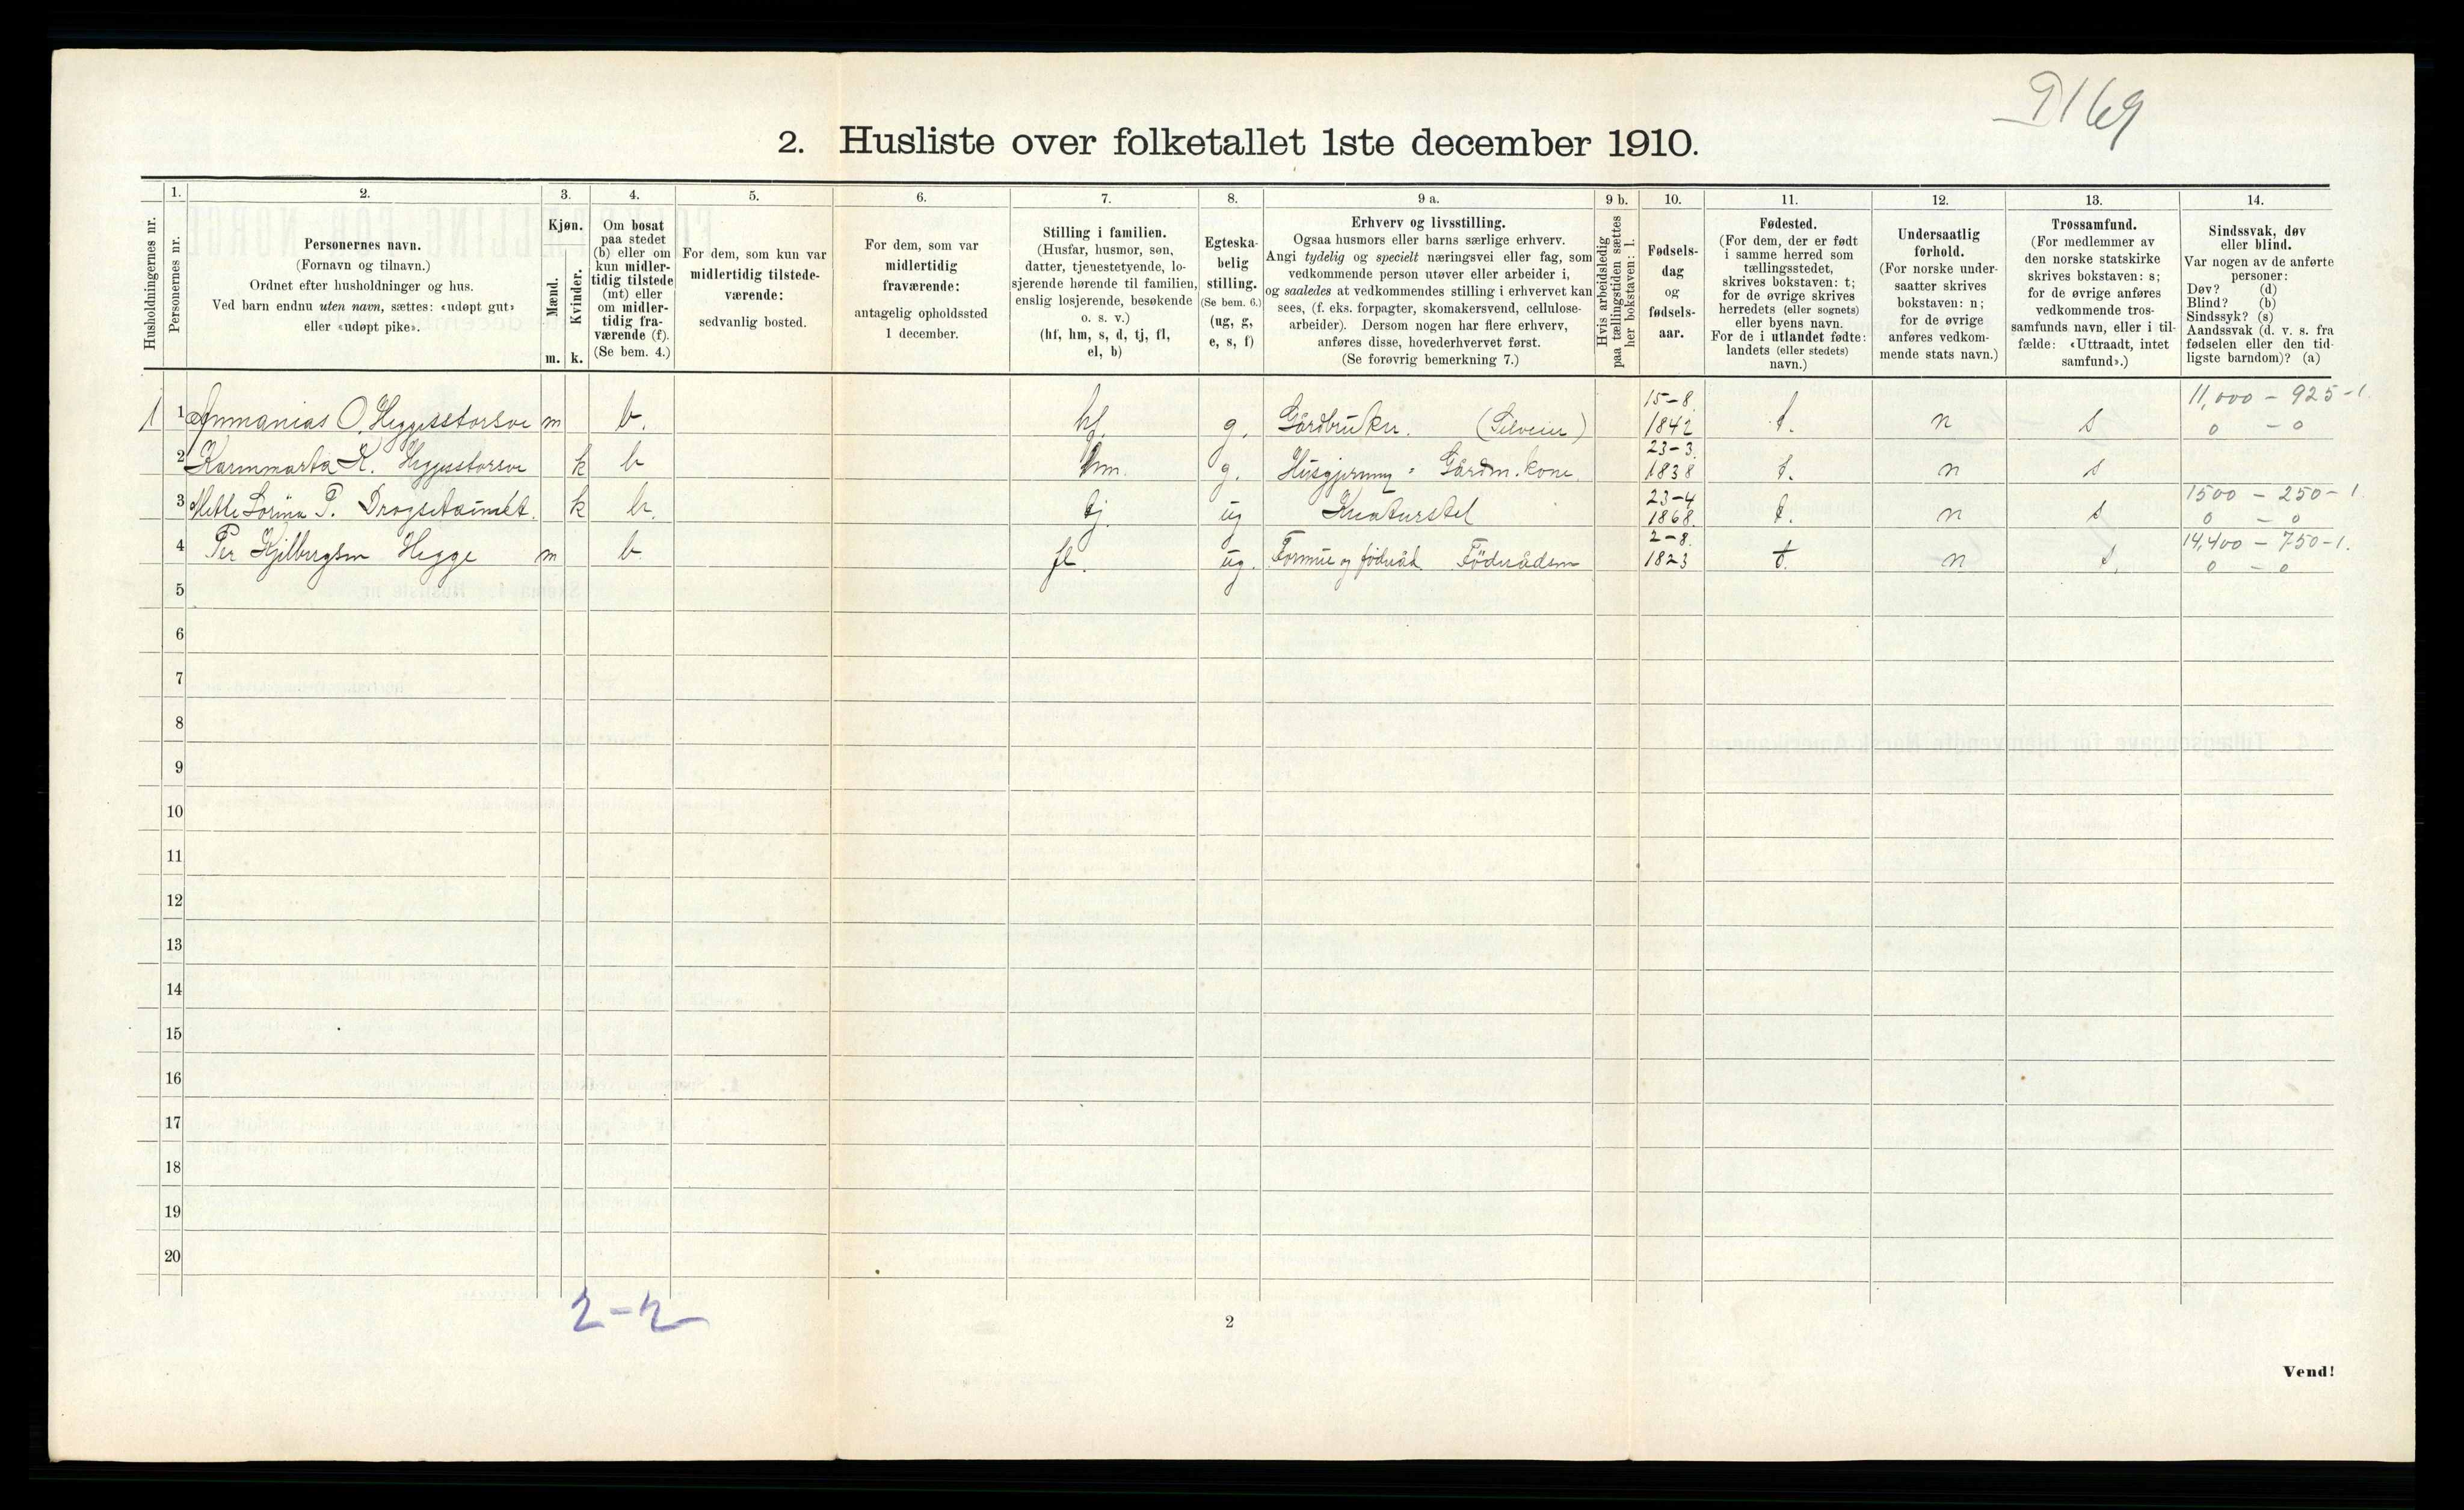 9169
2. Husliste over folketallet 1ste december 1910.
Husholdningernes nr.
1.
Personernes nr.
2.
Personernes navn.
(Fornavn og tilnavn.)
Ordnet efter husholdninger og hus.
Ved barn endnu uten navn, sættes: «udøpt gut»
eller «udøpt pike».
3.
Kjøn.
Mænd.
Kvinder.
m. k.
4.
Om bosat
paa stedet
(b) eller om
kun midler-
tidig tilstede
(mt) eller
om midler-
tidig fra-
værende (f).
(Se bem. 4.)
5.
For dem, som kun var
midlertidig tilstede-
værende:
sedvanlig bosted.
6.
For dem, som var
midlertidig
fraværende:
antagelig opholdssted
1 december.
7.
Stilling i familien.
(Husfar, husmor, søn,
datter, tjenestetyende, lo-
sjerende hørende til familien,
enslig losjerende, besøkende
o. s. v.)
(hf, hm, s, d, tj, fl,
el, b)
8.
Egteska-
belig
stilling.
(Se bem. 6.)
(ug, g,
e, s, f)
9 a.
Erhverv og livsstilling.
Ogsaa husmors eller barns særlige erhverv.
Angi tydelig og specielt næringsvei eller fag, som
vedkommende person utøver eller arbeider i,
og saaledes at vedkommendes stilling i erhvervet kan
sees, (f. eks. forpagter, skomakersvend, cellulose-
arbeider). Dersom nogen har flere erhverv,
anføres disse, hovederhvervet først.
(Se forøvrig bemerkning 7.)
9 b.
Hvis arbeidsledig
paa tællingstiden sættes
her bokstaven: l.
10.
Fødsels-
dag
og
fødsels-
aar.
11.
Fødested.
(For dem, der er født
i samme herred som
tællingsstedet,
skrives bokstaven: t;
for de øvrige skrives
herredets (eller sognets)
eller byens navn.
For de i utlandet fødte:
landets (eller stedets)
navn.)
12.
Undersaatlig
forhold.
(For norske under-
saatter skrives
bokstaven: n;
for de øvrige
anføres vedkom-
mende stats navn.)
13.
Trossamfund.
(For medlemmer av
den norske statskirke
skrives bokstaven: s;
for de øvrige anføres
vedkommende tros-
samfunds navn, eller i til-
fælde: «Uttraadt, intet
samfund».)
14.
Sindssvak, døv
eller blind.
Var nogen av de anførte
personer:
Døv? (d)
Blind? (b)
Sindssyk? (s)
Aandssvak (d. v. s. fra
fødselen eller den tid-
ligste barndom)? (a)
15-8 11,000 - 925-1.
1 1 Ammanias O. Heggesstorsve m b. hf. g. Gårdbruker. (Selveier) 1842 t. n s 0 - 0
23-3.
2 Karenmarta K. Heggestorsve k b hm. g. Husgjerning = Gårdm. kone. 1838 t. n s
23-4 1500 - 250-1.
3 Mette Lorina P. k b. tj. ug Kreaturstel 1868. t. n s 0 - 0
2-8. 14,400 - 750-1.
4 Per Kjelbergsen Hegge m b. fl. ug. Formue og föderåd Föderådsm 1823 t. n s. 0 - 0
5
6
7
8
9
10
11
12
13
14
15
16
17
18
19
20
2-2
2
Vend!